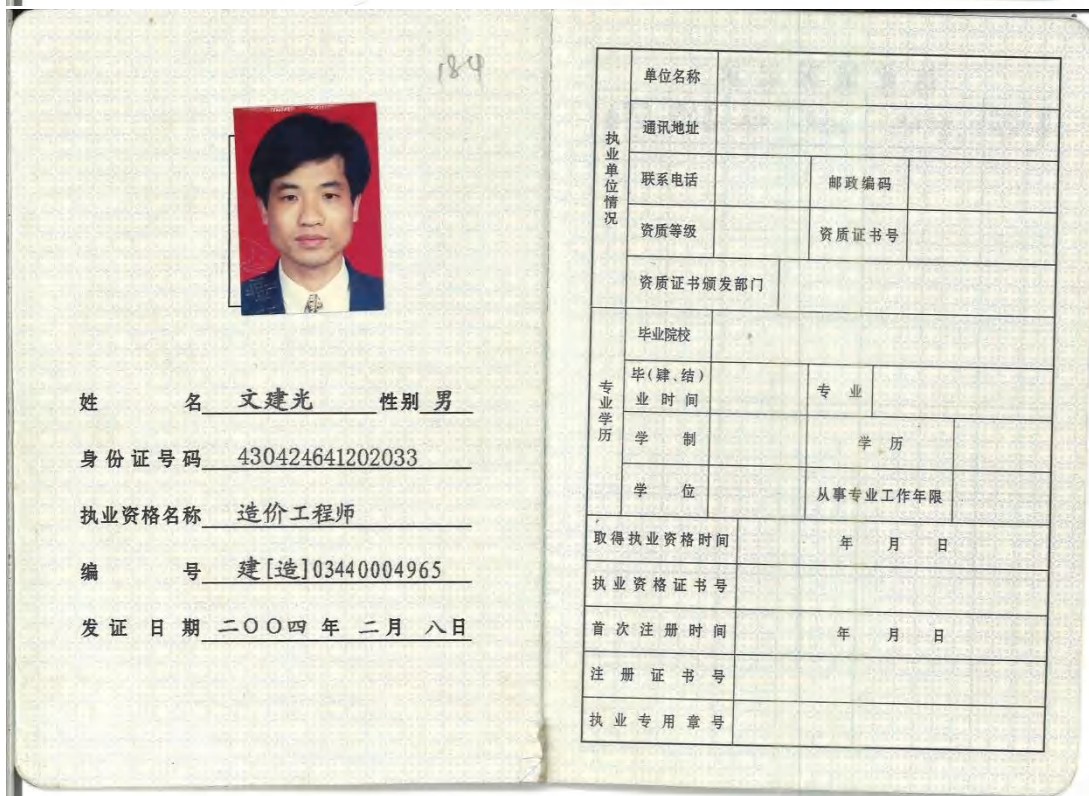 184
姓 名 文建光 性别 男
身份证号码 430424641202033
执业资格名称 造价工程师
编 号 建[造]03440004965
发证日期 二〇〇四年 二月 八日
执业单位情况
单位名称
通讯地址
联系电话 邮政编码
资质等级 资质证书号
资质证书颁发部门
专业学历
毕业院校
毕(肄、结)
业时间 专业
学制 学历
学位 从事专业工作年限
取得执业资格时间 年 月 日
执业资格证书号
首次注册时间 年 月 日
注册证书号
执业专用章号